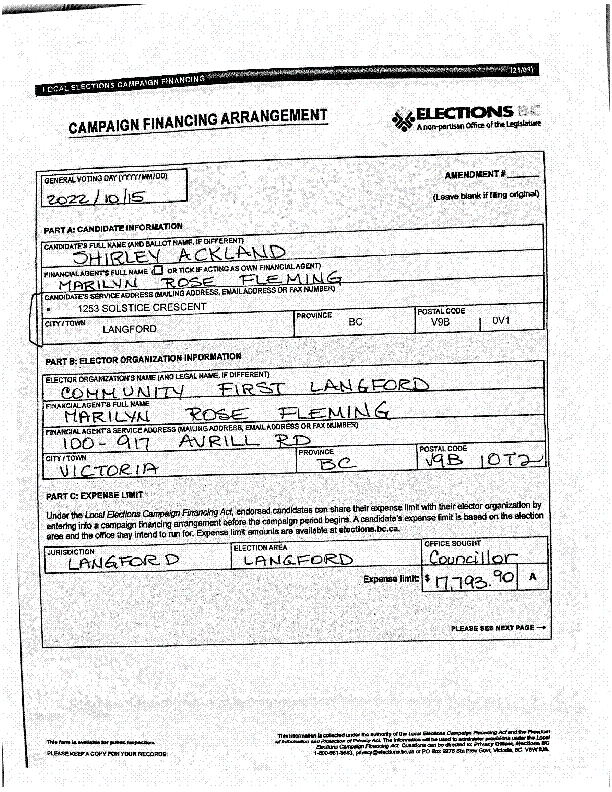 LOCAL ELECTIONS CAMPAIGN FINANCING (21/09)
CAMPAIGN FINANCING ARRANGEMENT
ELECTIONS BC
A non-partisan Office of the Legislature
GENERAL VOTING DAY (YYYY/MM/DD)
2022/10/15
AMENDMENT #
(Leave blank if filing original)
PART A: CANDIDATE INFORMATION
CANDIDATE'S FULL NAME (AND BALLOT NAME, IF DIFFERENT)
SHIRLEY ACKLAND
FINANCIAL AGENT'S FULL NAME OR TICK IF ACTING AS OWN FINANCIAL AGENT)
MARILYN ROSE FLEMING
CANDIDATE'S SERVICE ADDRESS (MAILING ADDRESS, EMAIL ADDRESS OR FAX NUMBER)
1253 SOLSTICE CRESCENT
CITY/TOWN PROVINCE POSTAL CODE
LANGFORD BC V9B 0V1
PART B: ELECTOR ORGANIZATION INFORMATION
ELECTOR ORGANIZATION'S NAME (AND LEGAL NAME, IF DIFFERENT)
COMMUNITY FIRST LANGFORD
FINANCIAL AGENT'S FULL NAME
MARILYN ROSE FLEMING
FINANCIAL AGENT'S SERVICE ADDRESS (MAILING ADDRESS, EMAIL ADDRESS OR FAX NUMBER)
100-917 AVRILL RD
CITY/TOWN PROVINCE POSTAL CODE
VICTORIA BC V9B 0T2
PART C: EXPENSE LIMIT
Under the Local Elections Campaign Financing Act, endorsed candidates can share their expense limit with their elector organization by
entering into a campaign financing arrangement before the campaign period begins. A candidate's expense limit is based on the election
area and the office they intend to run for. Expense limit amounts are available at elections.bc.ca.
JURISDICTION ELECTION AREA OFFICE SOUGHT
LANGFORD LANGFORD Councillor
Expense limit: $ 17,793.90 A
PLEASE SEE NEXT PAGE →
This form is available for public inspection.
PLEASE KEEP A COPY FOR YOUR RECORDS
This information is collected under the authority of the Local Elections Campaign Financing Act and the Freedom
of Information and Protection of Privacy Act. The information will be used to administer provisions under the Local
Elections Campaign Financing Act. Questions can be directed to: Privacy Officer, Elections BC
1-800-661-8683, privacy@elections.bc.ca or PO Box 9275 Stn Prov Govt, Victoria, BC V8W 9J6.